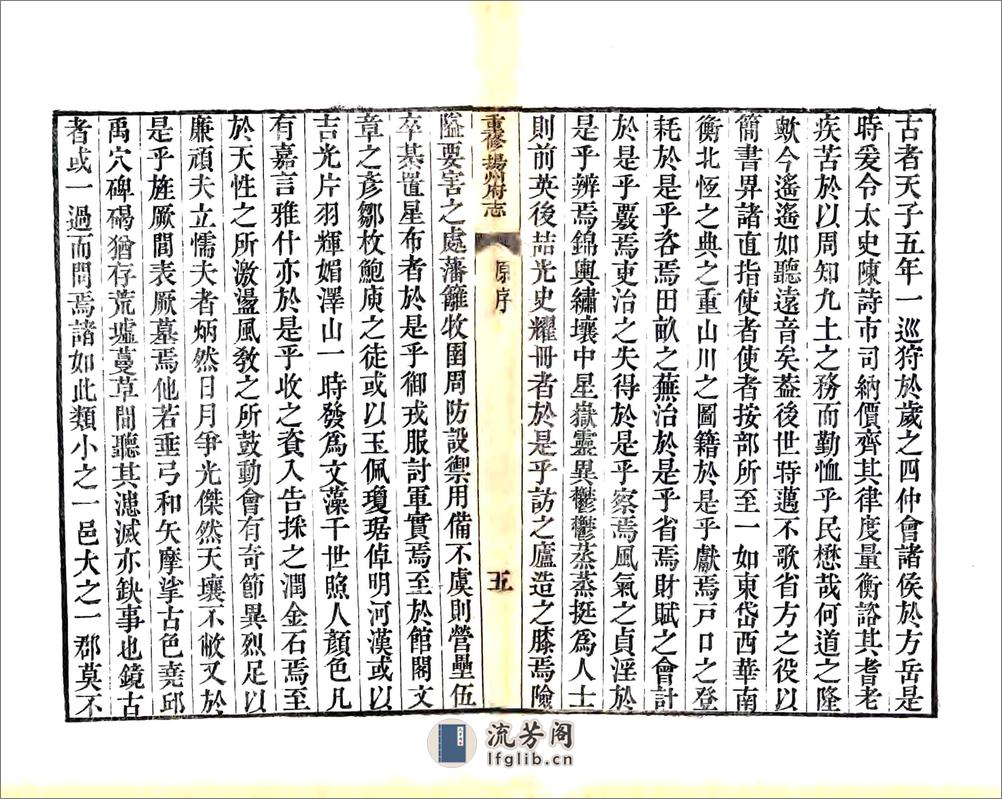 古者天子五年一巡狩於歲之四仲會諸侯於方岳是
時爰令太史陳詩市司納價齊其律度量衡諮其耆老
疾苦於以周知九土之務而勤恤乎民懋哉何道之隆
歟今遙遙如聽遠音矣葢後世時邁不歌省方之役以
簡書畀諸直指使者使者按部所至一如東岱西華南
衡北恆之典之重山川之圖籍於是乎獻焉戸口之登
耗於是乎咨焉田畝之蕪治於是乎省焉財賦之會計
於是乎覈焉吏治之失得於是乎察焉風氣之貞淫於
是乎辨焉錦輿繡壤中星嶽靈異鬱鬱蒸蒸挺爲人士
則前英後喆光史耀冊者於是乎訪之廬造之膝焉險
重修揚州府志
原序
五
隘要害之處藩籬牧圉周防設禦用備不虞則營壘伍
卒棊置星布者於是乎御戎服討軍實焉至於館閣文
章之彥鄒枚鮑庾之徒或以玉佩瓊琚倬明河漢或以
吉光片羽輝媚澤山一時發爲文藻千世照人顏色凡
有嘉言雅什亦於是乎收之資入告採之潤金石焉至
於天性之所激盪風敎之所鼓動會有奇節異烈足以
廉頑夫立懦夫者炳然日月爭光傑然天壤不敝又於
是乎旌厥閭表厥墓焉他若垂弓和矢摩挲古色堯邱
禹穴碑碣猶存荒墟蔓草間聽其漶滅亦缺事也鏡古
者或一過而問焉諸如此類小之一邑大之一郡莫不
流芳阁
lfglib.cn